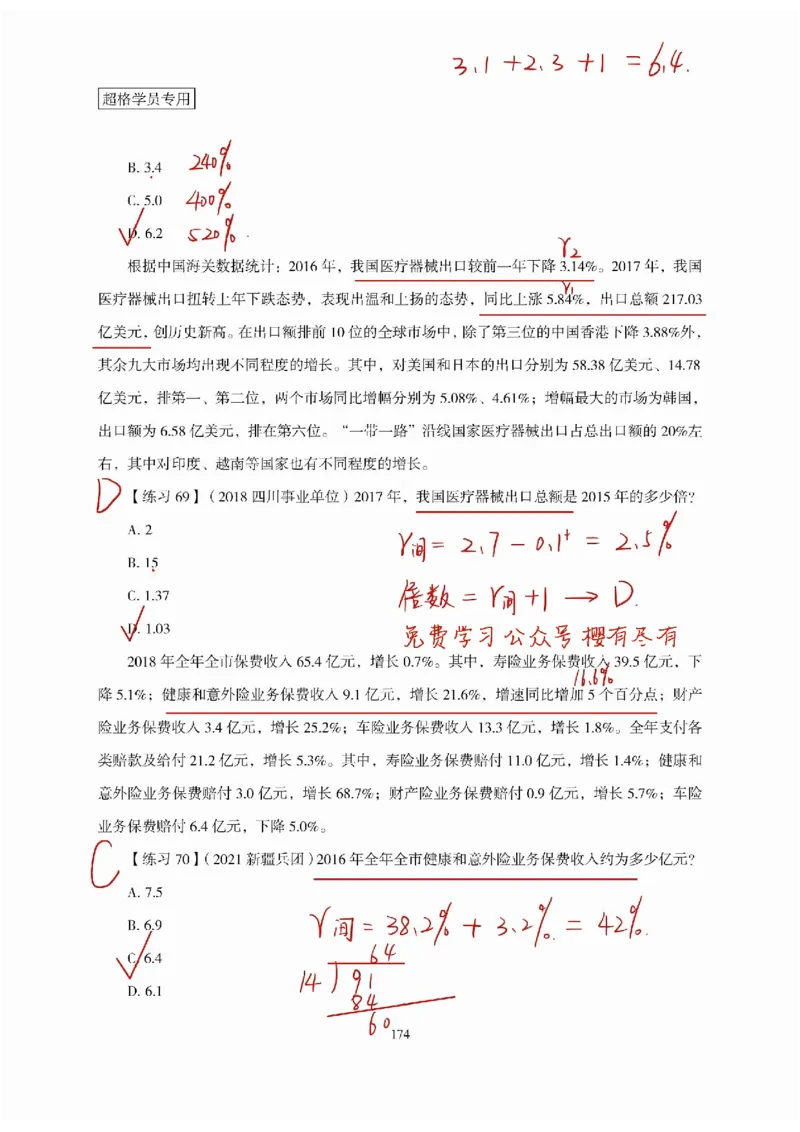 3.1 + 2.3 + 1 = 6.4.
超格学员专用
B. 3.4 240%
C. 5.0 400%
D. 6.2 520%.
r2
根据中国海关数据统计：2016 年，我国医疗器械出口较前一年下降 3.14%。2017 年，我国
r1
医疗器械出口扭转上年下跌态势，表现出温和上扬的态势，同比上涨 5.84%，出口总额 217.03
亿美元，创历史新高。在出口额排前 10 位的全球市场中，除了第三位的中国香港下降 3.88%外，
其余九大市场均出现不同程度的增长。其中，对美国和日本的出口分别为 58.38 亿美元、14.78
亿美元，排第一、第二位，两个市场同比增幅分别为 5.08%、4.61%；增幅最大的市场为韩国，
出口额为 6.58 亿美元，排在第六位。“一带一路”沿线国家医疗器械出口占总出口额的 20%左
右，其中对印度、越南等国家也有不同程度的增长。
D 【练习 69】（2018 四川事业单位）2017 年，我国医疗器械出口总额是 2015 年的多少倍？
A. 2
r间 = 2.7 - 0.1+ = 2.5%
B. 15
C. 1.37
倍数 = r间 + 1 → D.
D. 1.03
免费学习公众号 樱有尽有
2018 年全年全市保费收入 65.4 亿元，增长 0.7%。其中，寿险业务保费收入 39.5 亿元，下
16.6%
降 5.1%；健康和意外险业务保费收入 9.1 亿元，增长 21.6%，增速同比增加 5 个百分点；财产
险业务保费收入 3.4 亿元，增长 25.2%；车险业务保费收入 13.3 亿元，增长 1.8%。全年支付各
类赔款及给付 21.2 亿元，增长 5.3%。其中，寿险业务保费赔付 11.0 亿元，增长 1.4%；健康和
意外险业务保费赔付 3.0 亿元，增长 68.7%；财产险业务保费赔付 0.9 亿元，增长 5.7%；车险
业务保费赔付 6.4 亿元，下降 5.0%。
C 【练习 70】（2021 新疆兵团）2016 年全年全市健康和意外险业务保费收入约为多少亿元？
A. 7.5
B. 6.9
r间 = 38.2% + 3.2% = 42%.
C. 6.4
64
14 91
84
D. 6.1
60
174